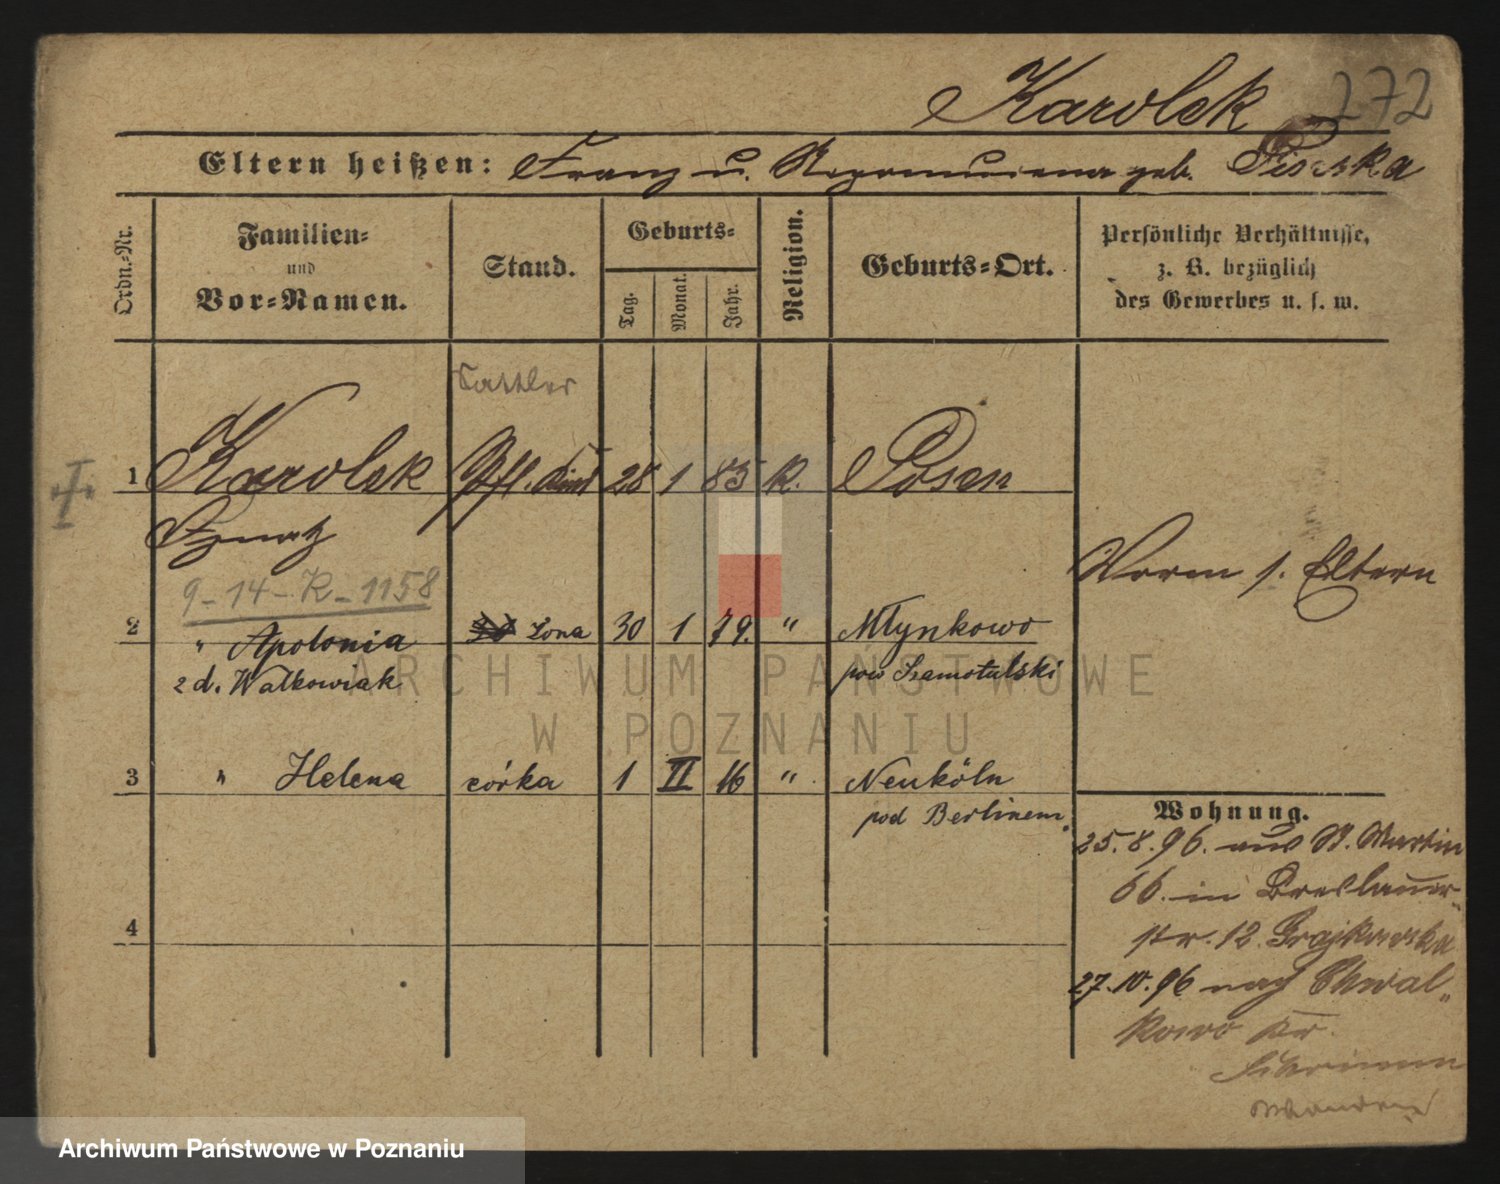 Karolek
272
Eltern heißen: Franz u. geb.
Ordn.-Nr.
Familien-
und
Vor-Namen.
Stand.
Geburts-
Tag.
Monat.
Jahr.
Religion.
Geburts-Ort.
Persönliche Verhältnisse,
z. B. bezüglich
des Gewerbes u. s. w.
Sattler
1 Karolek Pfl. Kind 28 1 85 K. Posen
Ignatz
9-14-K-1158
Worm s. Eltern
2 " Apolonia żona 30 1 79. " Młynkowo
z d. Walkowiak pow Szamotulski
3 " Helena córka 1 II 16 " Neuköln
pod Berlinem.
Wohnung.
25.8.96. aus St. Martin
66. in Breslauer-
4
str. 12. Grajkowska
27.10.96 nach Chwal-
kowo
ARCHIWUM PAŃSTWOWE
W POZNANIU
Archiwum Państwowe w Poznaniu